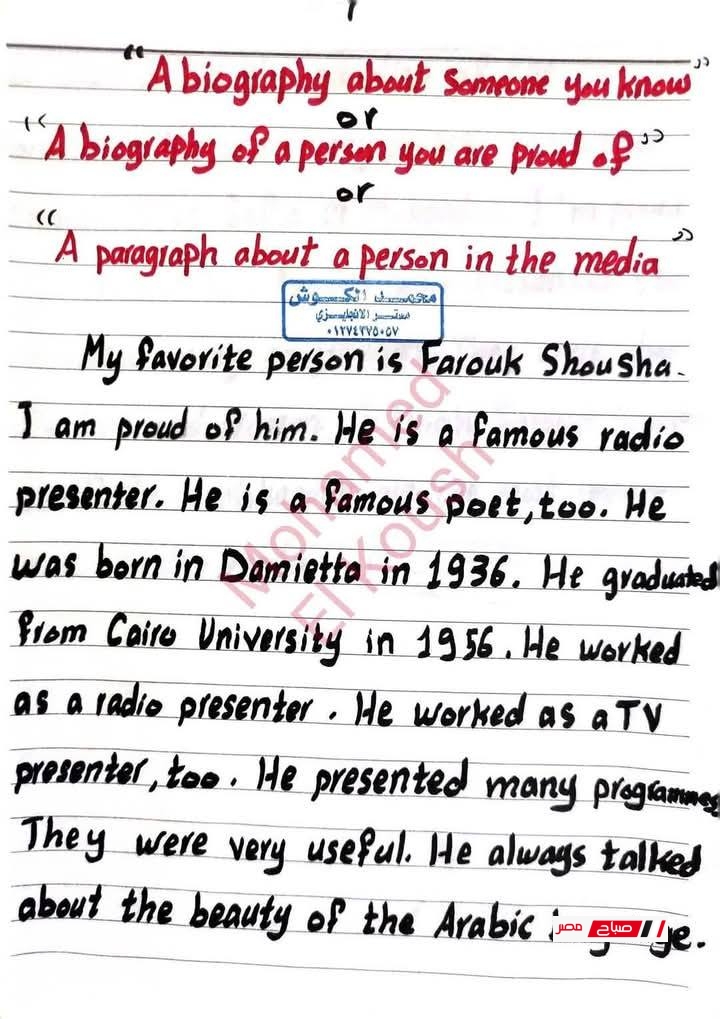 1
"A biography about someone you know"
or
"A biography of a person you are proud of"
or
"A paragraph about a person in the media"
محمد الكوش
مستر الانجليزي
٠١٢٧٤٢٧٥٠٥٧
My favorite person is Farouk Shousha.
I am proud of him. He is a famous radio
presenter. He is a famous poet, too. He
was born in Damietta in 1936. He graduated
from Cairo University in 1956. He worked
as a radio presenter. He worked as a TV
presenter, too. He presented many programmes
They were very useful. He always talked
about the beauty of the Arabic
صباح مصر
Mohamed
El Koush